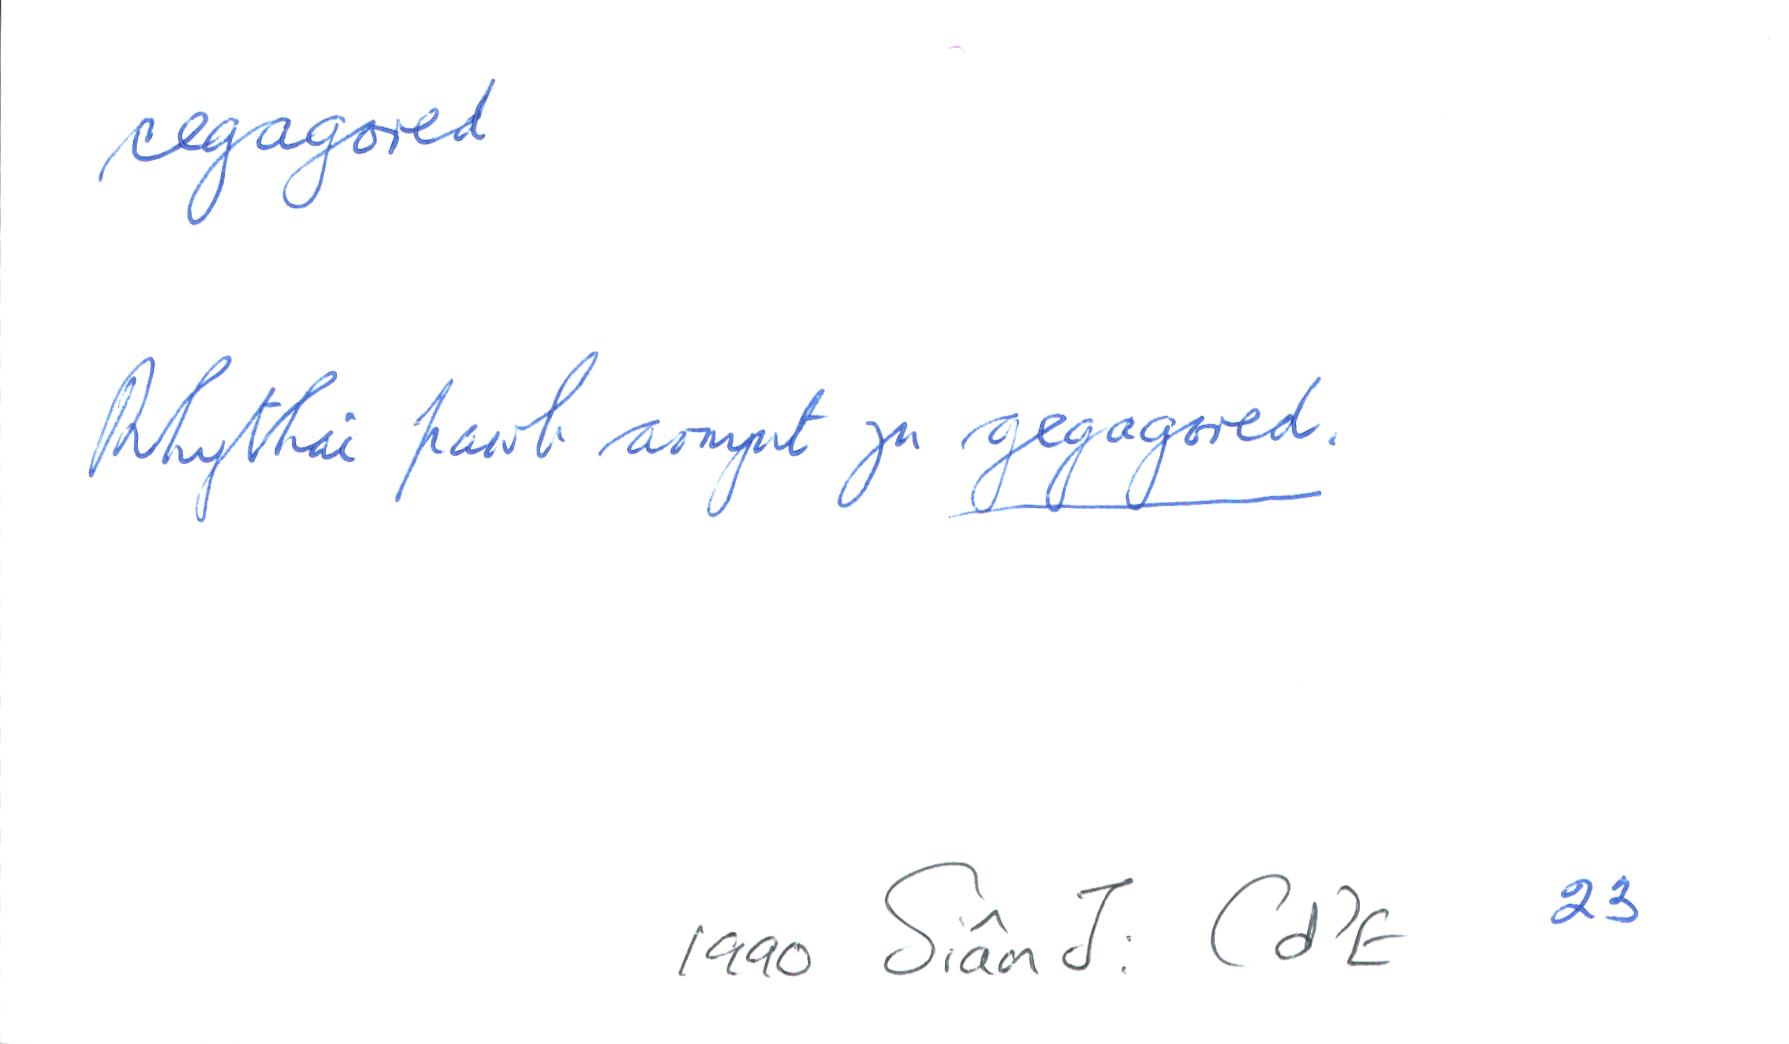 cegagored
Rhythai pawb arnynt yn gegagored.
1990 Siân J: Cd'E 23